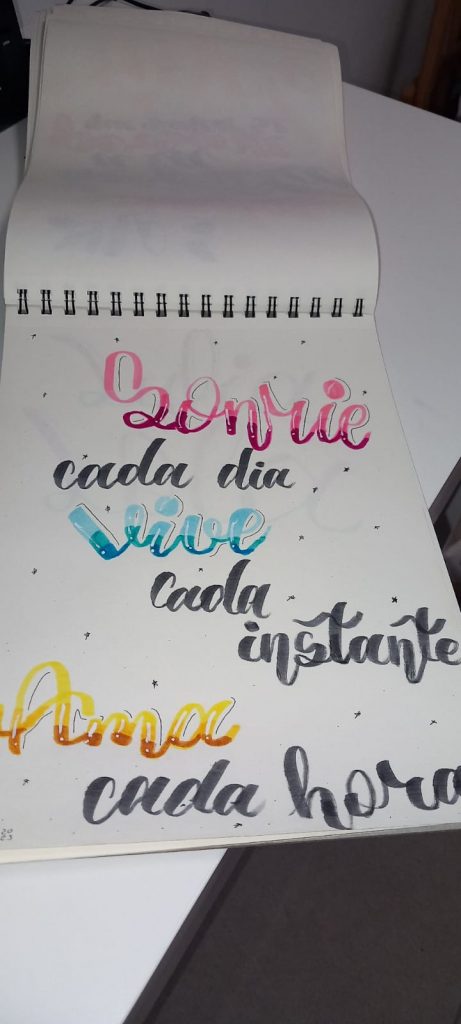 Sonrie
cada dia
vive
cada
instante
Ama
cada hora